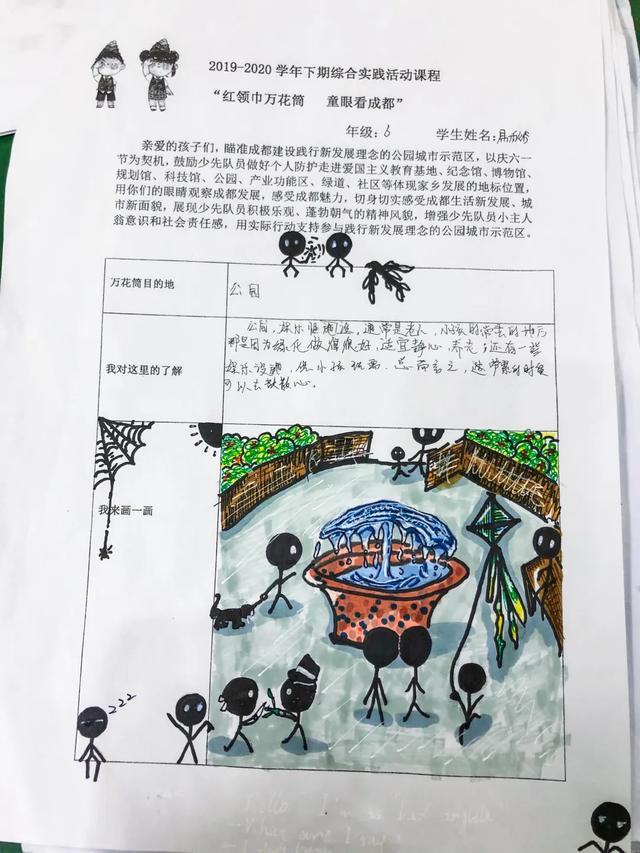 2019-2020 学年下期综合实践活动课程
“红领巾万花筒 童眼看成都”
年级：6 学生姓名：
亲爱的孩子们，瞄准成都建设践行新发展理念的公园城市示范区，以庆六一
节为契机，鼓励少先队员做好个人防护走进爱国主义教育基地、纪念馆、博物馆、
规划馆、科技馆、公园、产业功能区、绿道、社区等体现家乡发展的地标位置，
用你们的眼睛观察成都发展，感受成都魅力，切身切实感受成都生活新发展、城
市新面貌，展现少先队员积极乐观、蓬勃朝气的精神风貌，增强少先队员小主人
翁意识和社会责任感，用实际行动支持参与践行新发展理念的公园城市示范区。
万花筒目的地
公园
我对这里的了解
公园，娱乐休闲，通常是老人，小孩的常去的地方
那是因为绿化做得很好，适宜静心，养老；还有一些
娱乐设施，供小孩玩耍。总而言之，这 累的时候
可以去散散心。
我来画一画
zzz